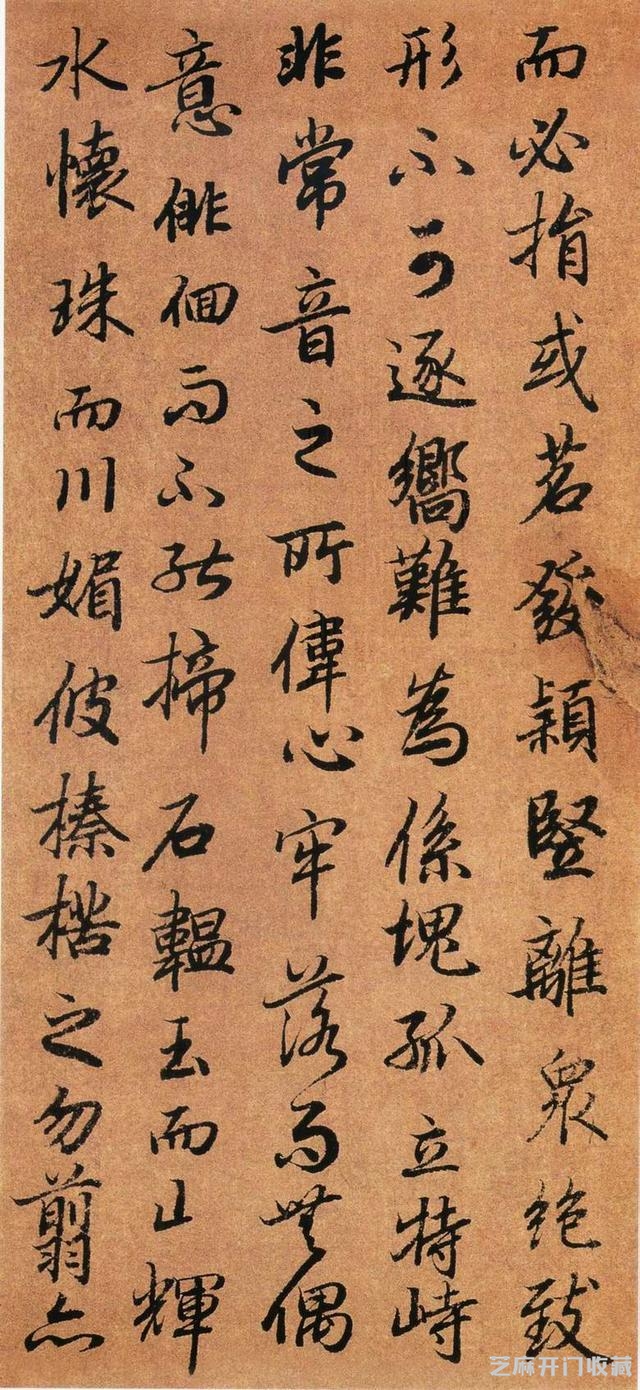 而必揃或苕發穎竪離衆絶致
形不可逐嚮難為係塊孤立特峙
非常音之所偉心牢落而無偶
意俳佪而不能揥石韞玉而山輝
水懷珠而川媚彼榛楛之勿翦亦
芝麻开门收藏